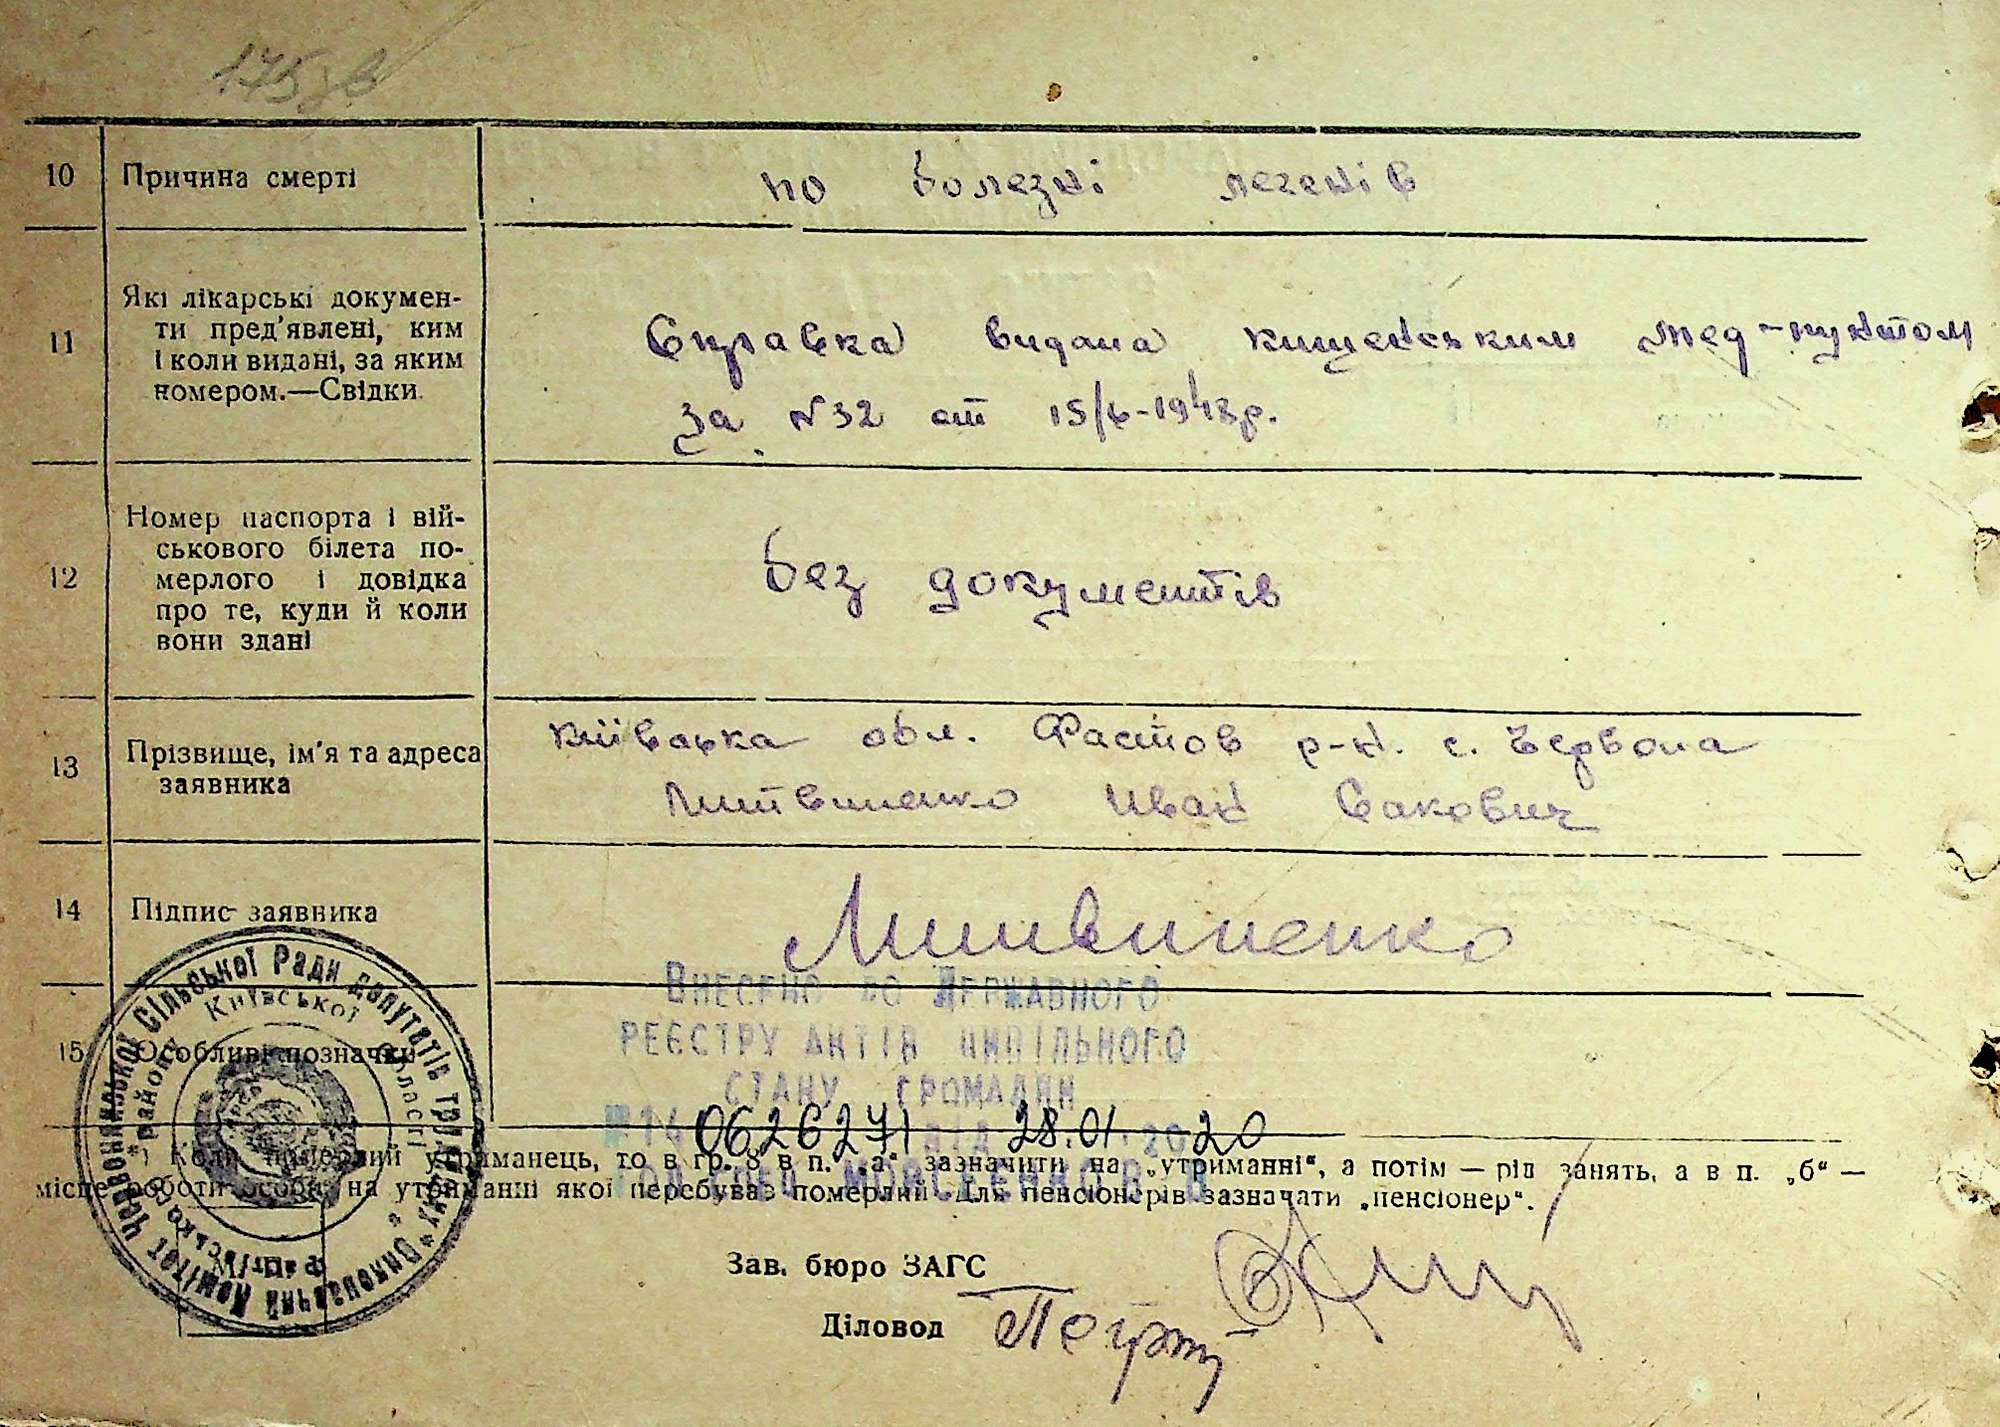 175 зв
10 Причина смерті
по болезні легенів
11 Які лікарські докумен-
ти пред'явлені, ким
і коли видані, за яким
номером.—Свідки
Справка видана мед-пунктом
за N32 от 15/6-1948р.
12 Номер паспорта і вій-
ськового білета по-
мерлого і довідка
про те, куди й коли
вони здані
без документів
13 Прізвище, ім'я та адреса
заявника
київська обл. Фастов р-н. с. Червона
Литвиненко Иван Сакович
14 Підпис заявника
Литвиненко
15 Особливі позначки
Внесено до Державного
реєстру актів цивільного
стану громадян
0626271 від 28.01.2020
¹) Коли померлий утриманець, то в гр. 8 в п. „а“ зазначити на „утриманні“, а потім — рід занять, а в п. „б“ —
місце роботи особи, на утриманні якої перебував померлий. Для пенсіонерів зазначати „пенсіонер“.
Зав. бюро ЗАГС
Діловод
Виконавчий Комітет Сільської Ради депутатів трудящих
району Київської області